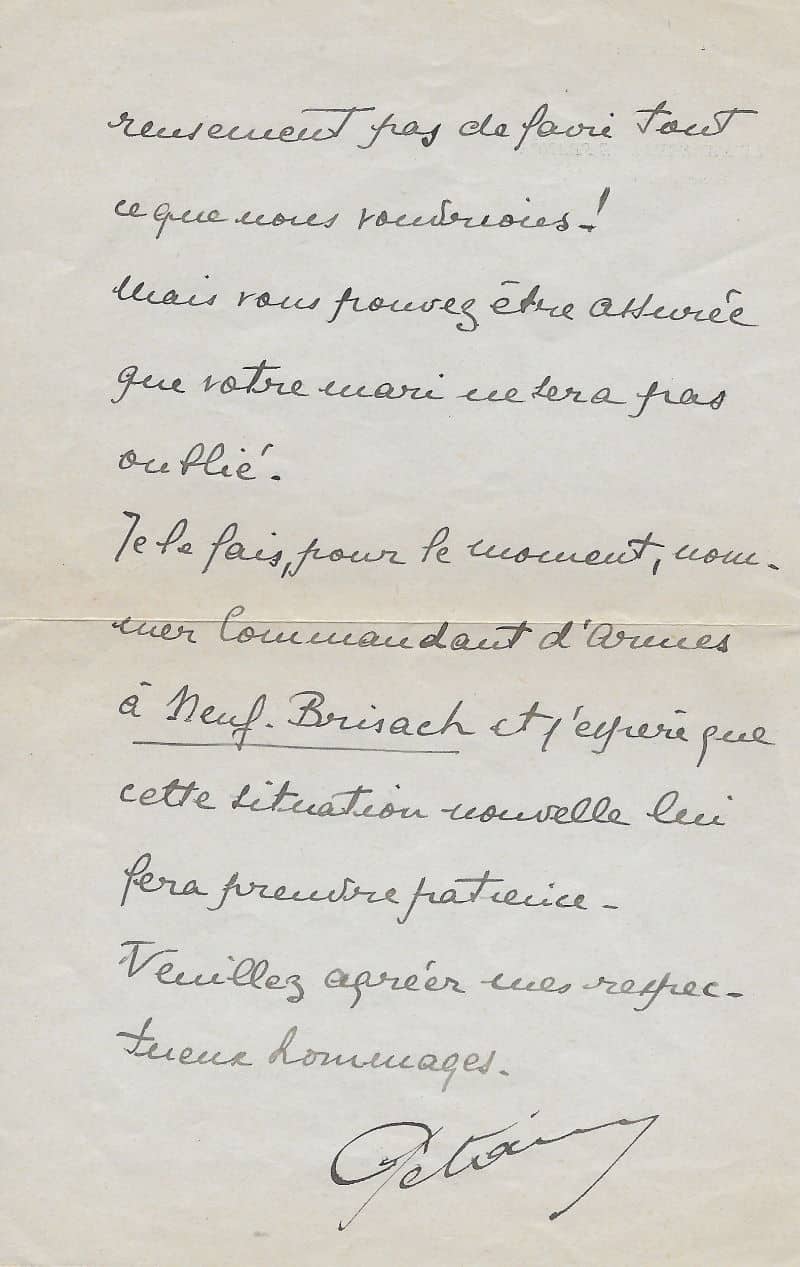 reusement pas de faire tout
ce que nous voudrions!
Mais vous pouvez être assurée
que votre mari ne sera pas
oublié.
Je le fais, pour le moment, nom-
mer Commandant d'Armes
à Neuf-Brisach et j'espère que
cette situation nouvelle lui
fera prendre patience-
Veuillez agréer mes respec-
tueux hommages.
Pétain